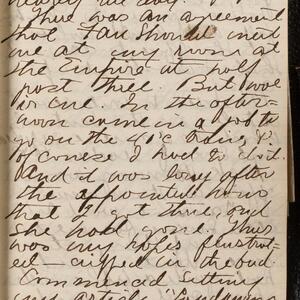 There was an agreement
that Fan should meet
me at my room at
the Empire at half
past three. But woe
is me. In the after-
noon came in a job to
go on the 4 o'c train, &
of course I had to do it.
And it was long after
the appointed hour
that I got there, and
she had gone. Thus
was my hopes frustrat-
ed—nipped in the bud.
Commenced setting
my article